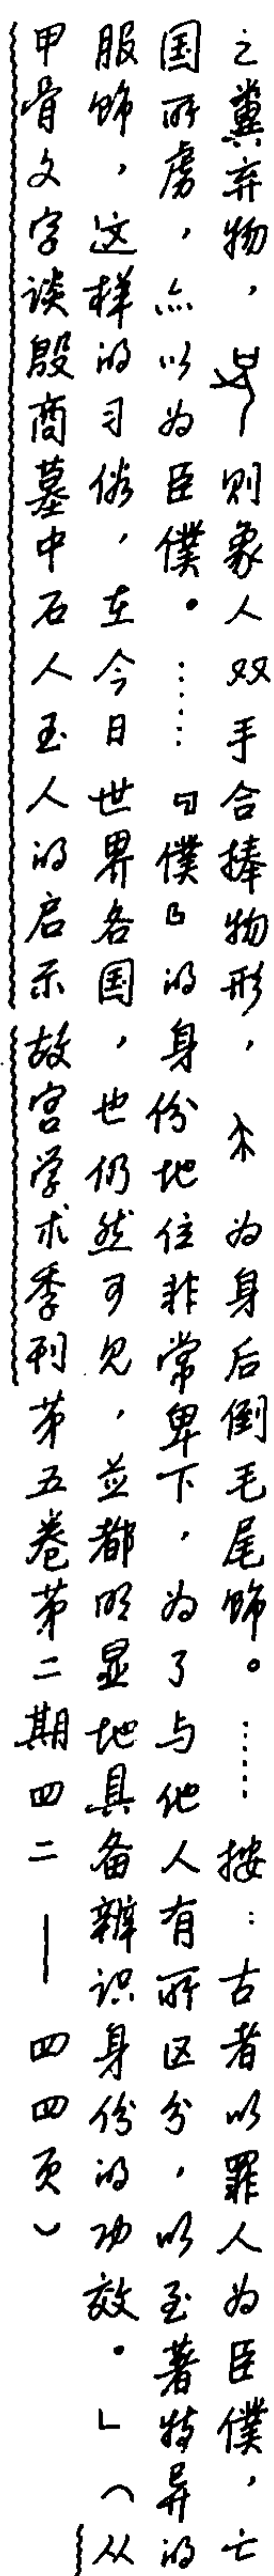 之糞弃物，則象人双手合捧物形，为身后倒毛尾饰。……按：古者以罪人为臣僕，亡
国所虏，亦以为臣僕。……『僕』的身份地位非常卑下，为了与他人有所区分，以至著特异的
服饰，这样的习俗，在今日世界各国，也仍然可见，並都明显地具备辨识身份的功效。」（从
甲骨文字谈殷商墓中石人玉人的启示故宫学术季刊第五卷第二期四二——四四页）